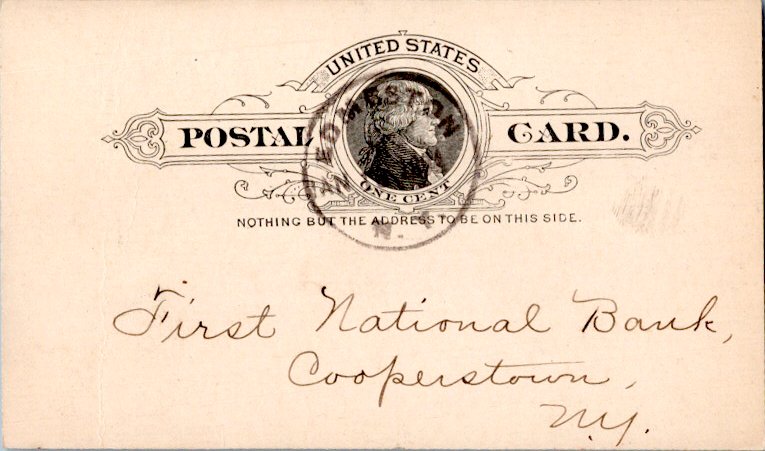 UNITED STATES
POSTAL CARD.
EDMESTON
JAN
N.Y.
ONE CENT
NOTHING BUT THE ADDRESS TO BE ON THIS SIDE.
First National Bank,
Cooperstown,
N.Y.